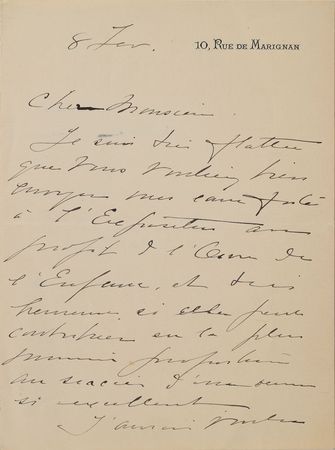 8 Fev.
10, RUE DE MARIGNAN
Cher Monsieur
Je suis très flattée
que vous vouliez bien
envoyer mes eaux fortes
à l'Exposition au
profit de l'Œuvre de
l'Enfance, et très
heureuse si elles peuvent
contribuer en la plus
minime proportion
au succès d'une œuvre
si excellente
J'aurais voulu